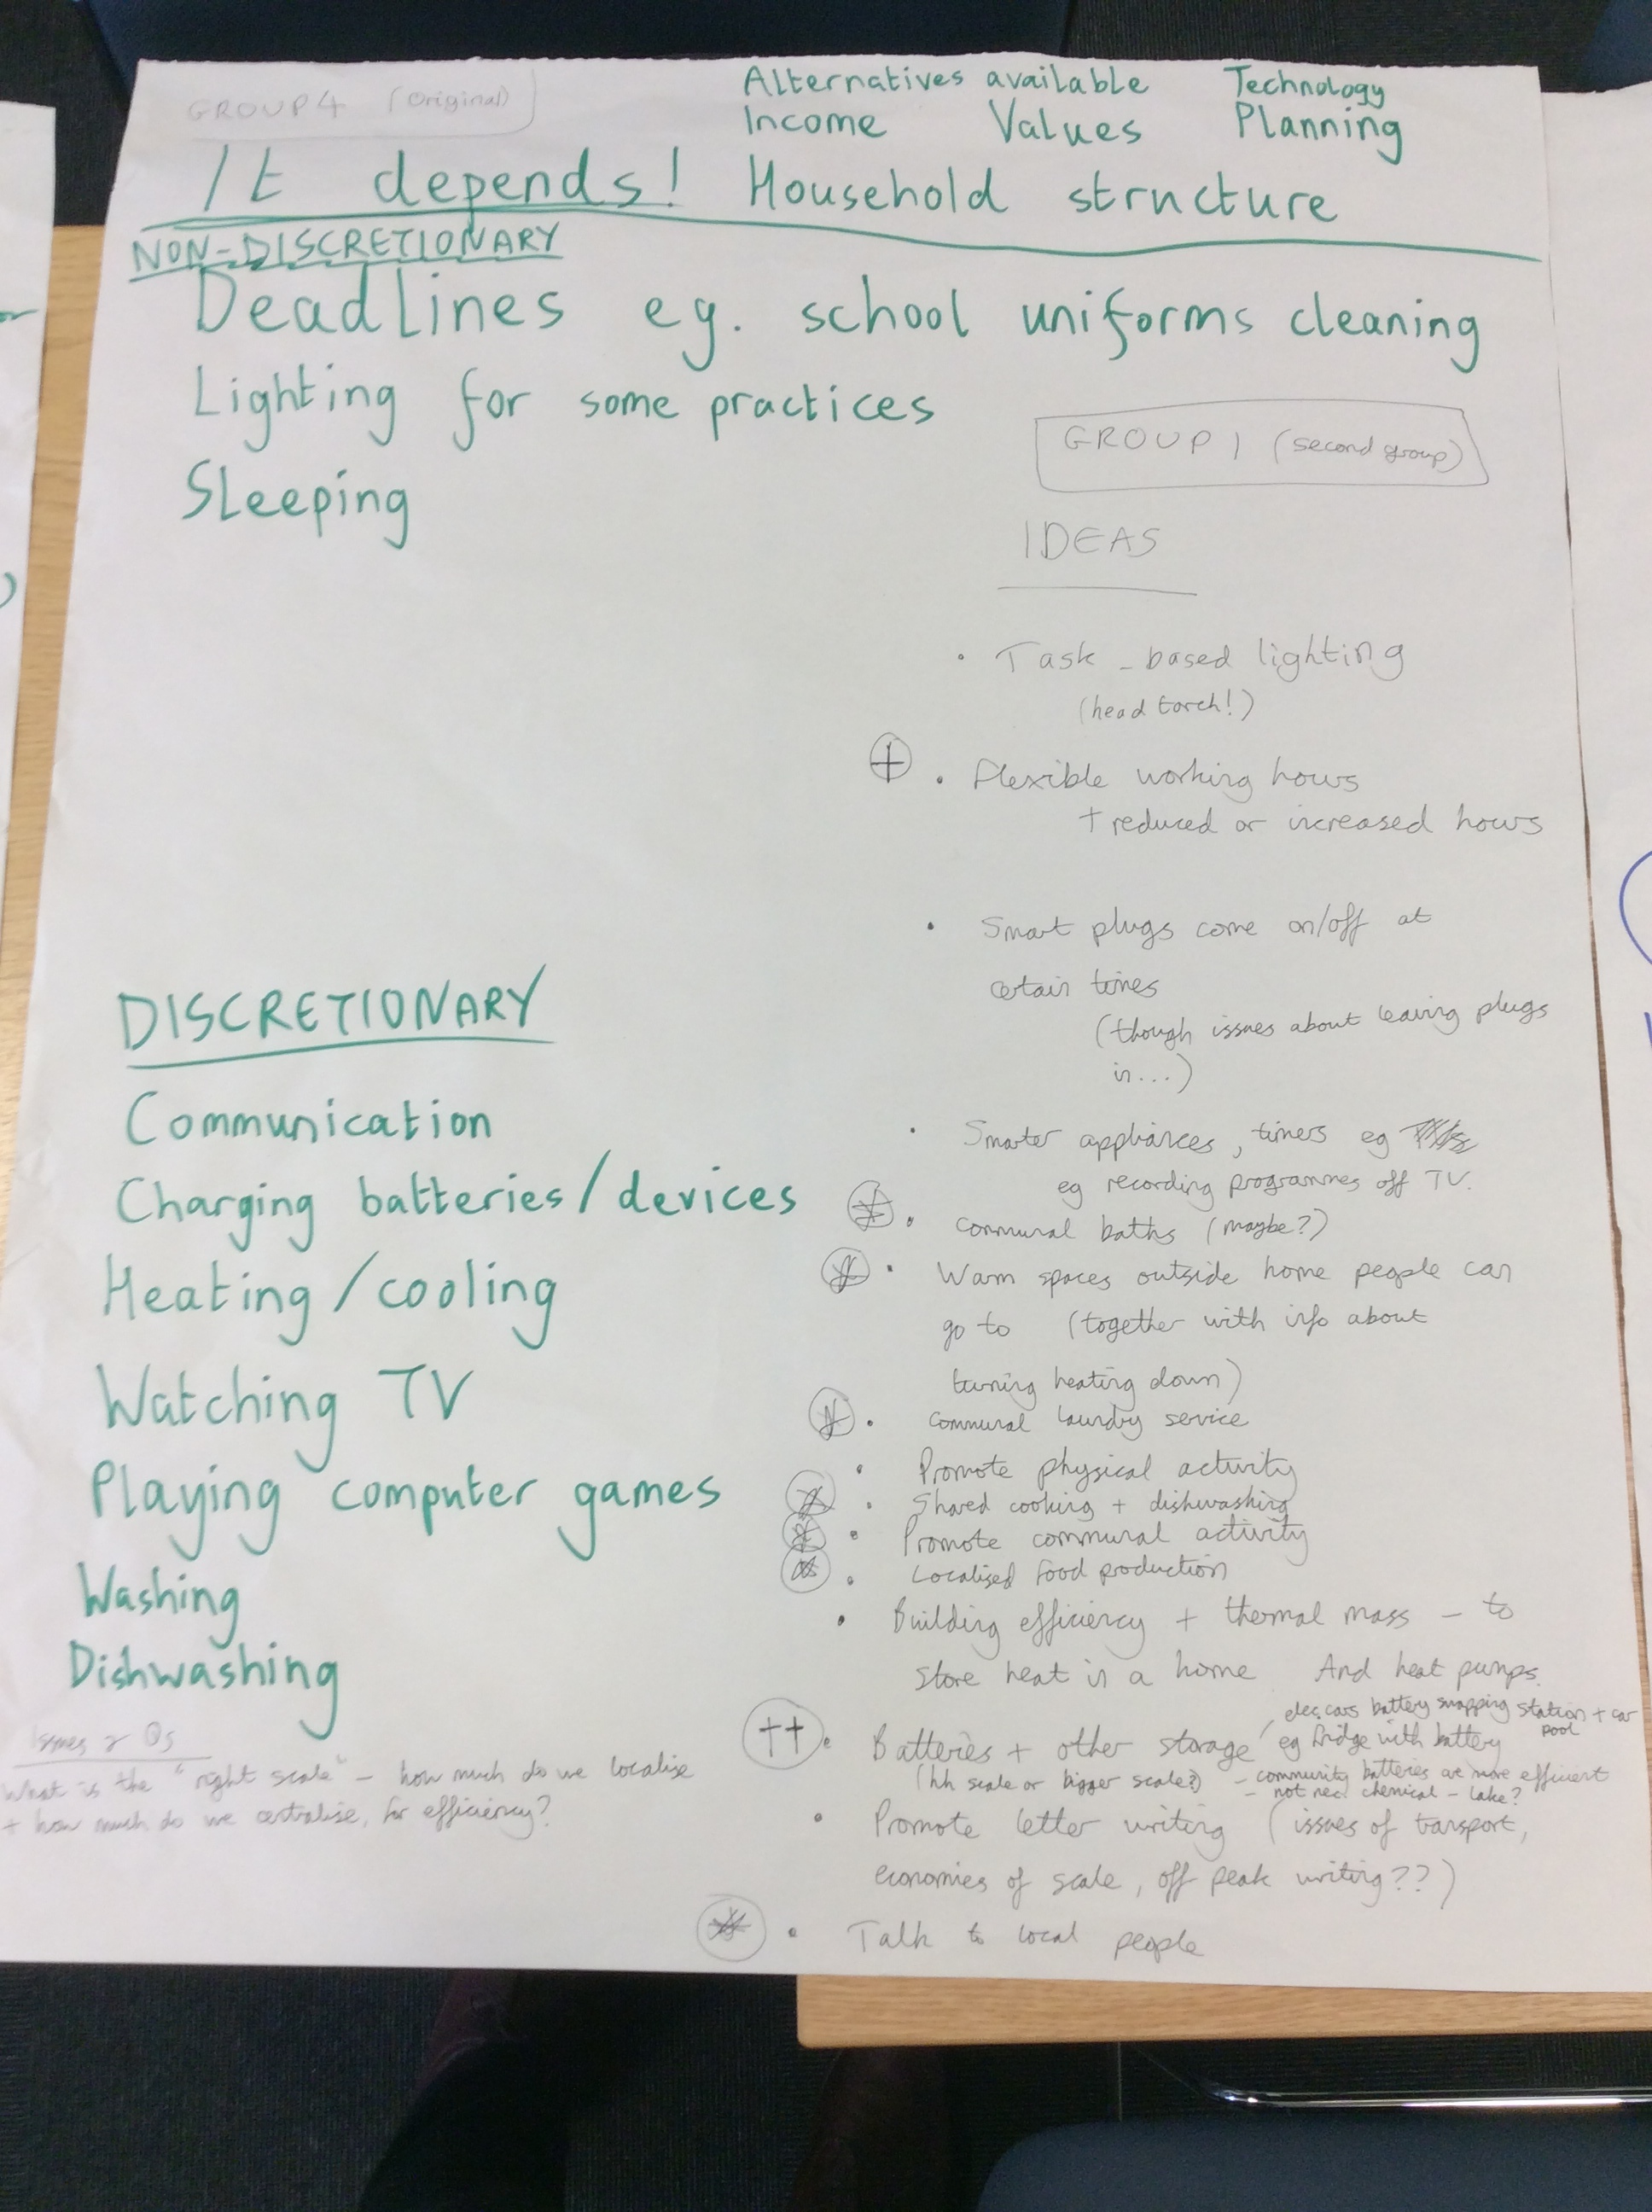 GROUP 4 (Original)
Alternatives available Technology
Income Values Planning
It depends! Household structure
NON-DISCRETIONARY
Deadlines eg. school uniforms cleaning
Lighting for some practices
Sleeping
GROUP 1 (second group)
IDEAS
• Task-based lighting
(head torch!)
+ • Flexible working hours
+ reduced or increased hours
• Smart plugs come on/off at
certain times
(though issues about leaving plugs
in...)
• Smarter appliances, timers eg
eg recording programmes off TV.
* • Communal baths (maybe?)
* • Warm spaces outside home people can
go to (together with info about
turning heating down)
* • Communal laundry service
• Promote physical activity
* • Shared cooking + dishwashing
* • Promote communal activity
* • Localised food production
• Building efficiency + thermal mass - to
store heat in a home And heat pumps.
elec. cars battery swapping station + car
pool
++ • Batteries + other storage eg fridge with battery
(hh scale or bigger scale?) - community batteries are more efficient
- not nec. chemical - lake?
• Promote letter writing (issues of transport,
economies of scale, off peak writing??)
* • Talk to local people
DISCRETIONARY
Communication
Charging batteries/devices
Heating/cooling
Watching TV
Playing computer games
Washing
Dishwashing
Issues & Qs
What is the "right scale" - how much do we localise
+ how much do we centralise, for efficiency?